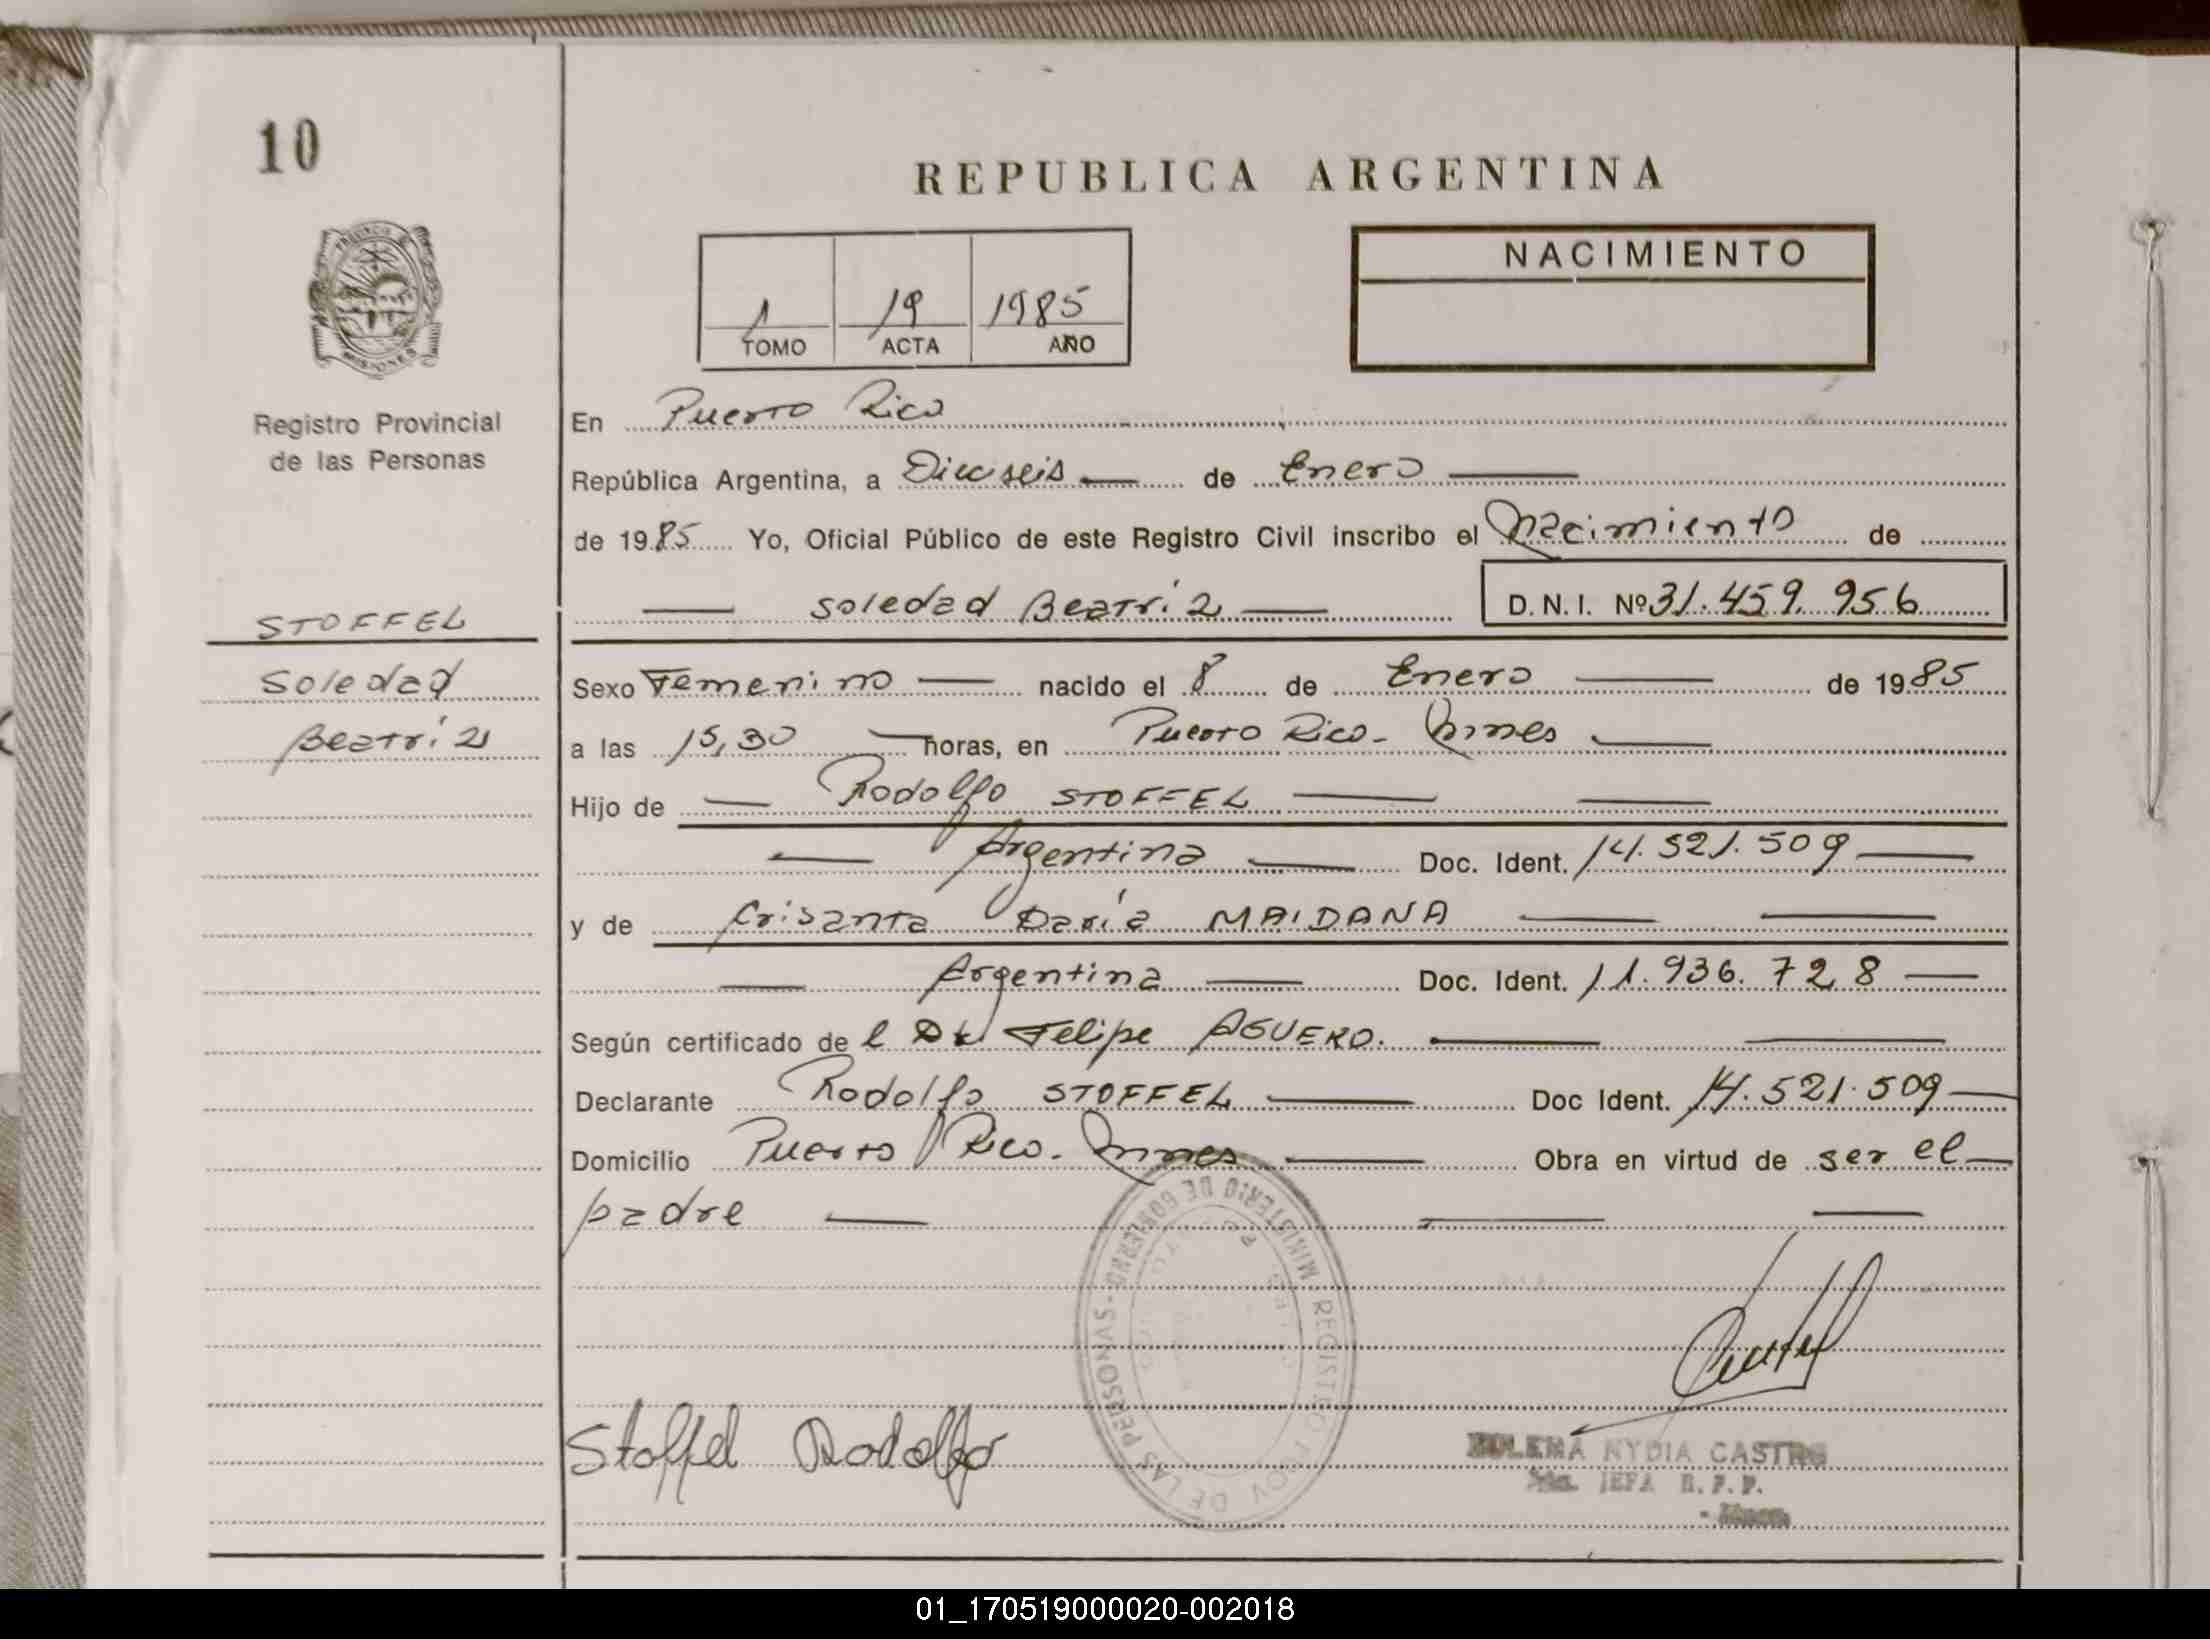 10
REPUBLICA ARGENTINA
NACIMIENTO
1 19 1985
TOMO ACTA AÑO
PROVINCIA DE
MISIONES
Registro Provincial
de las Personas
En Puerto Rico
República Argentina, a Dieciseis de Enero
de 1985 Yo, Oficial Público de este Registro Civil inscribo el Nacimiento de
Soledad Beatriz D.N.I. Nº 31.459.956
STOFFEL
Soledad
Beatriz
Sexo Femenino nacido el 8 de Enero de 1985
a las 15,30 horas, en Puerto Rico - Mnes
Hijo de Rodolfo STOFFEL
Argentina Doc. Ident. 14.521.509
y de Crisanta Daría MAIDANA
Argentina Doc. Ident. 11.936.728
Según certificado de l Dr Felipe AGUERO.
Declarante Rodolfo STOFFEL Doc Ident. 14.521.509
Domicilio Puerto Rico - Mnes Obra en virtud de ser el
padre
MINISTERIO DE GOBIERNO - REGISTRO PROV. DE LAS PERSONAS
Stoffel Rodolfo
NYDIA CASTRO
JEFA R.P.P.
01_170519000020-002018